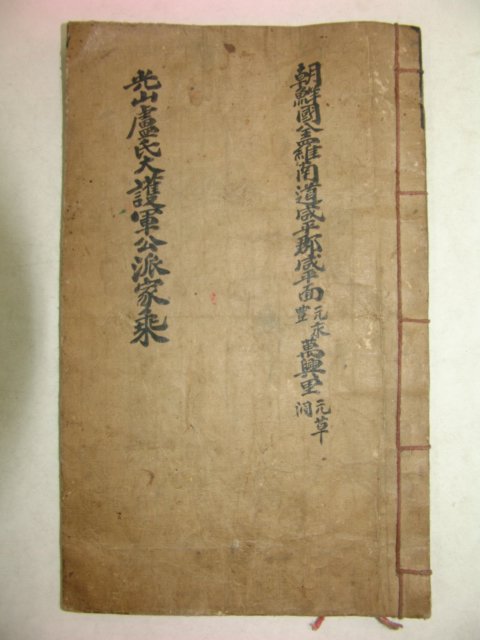 朝鮮國全羅南道咸平郡咸平面元永豐萬興里元草洞
光山盧氏大護軍公派家乘